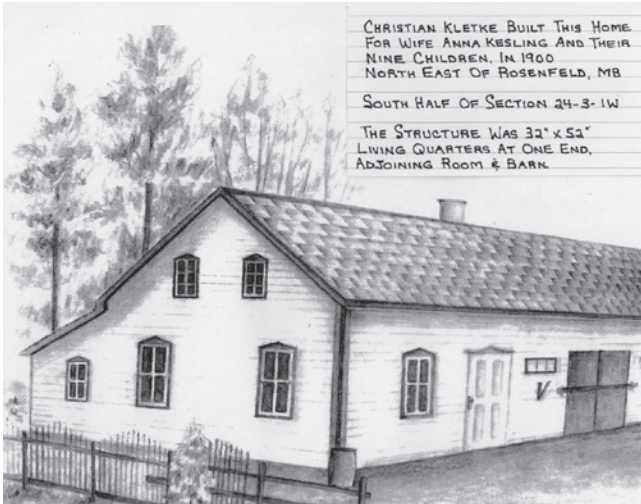 CHRISTIAN KLETKE BUILT THIS HOME
FOR WIFE ANNA KESLING AND THEIR
NINE CHILDREN, IN 1900
NORTH EAST OF ROSENFELD, MB
SOUTH HALF OF SECTION 24-3-1W
THE STRUCTURE WAS 32" x 52"
LIVING QUARTERS AT ONE END,
ADJOINING ROOM & BARN